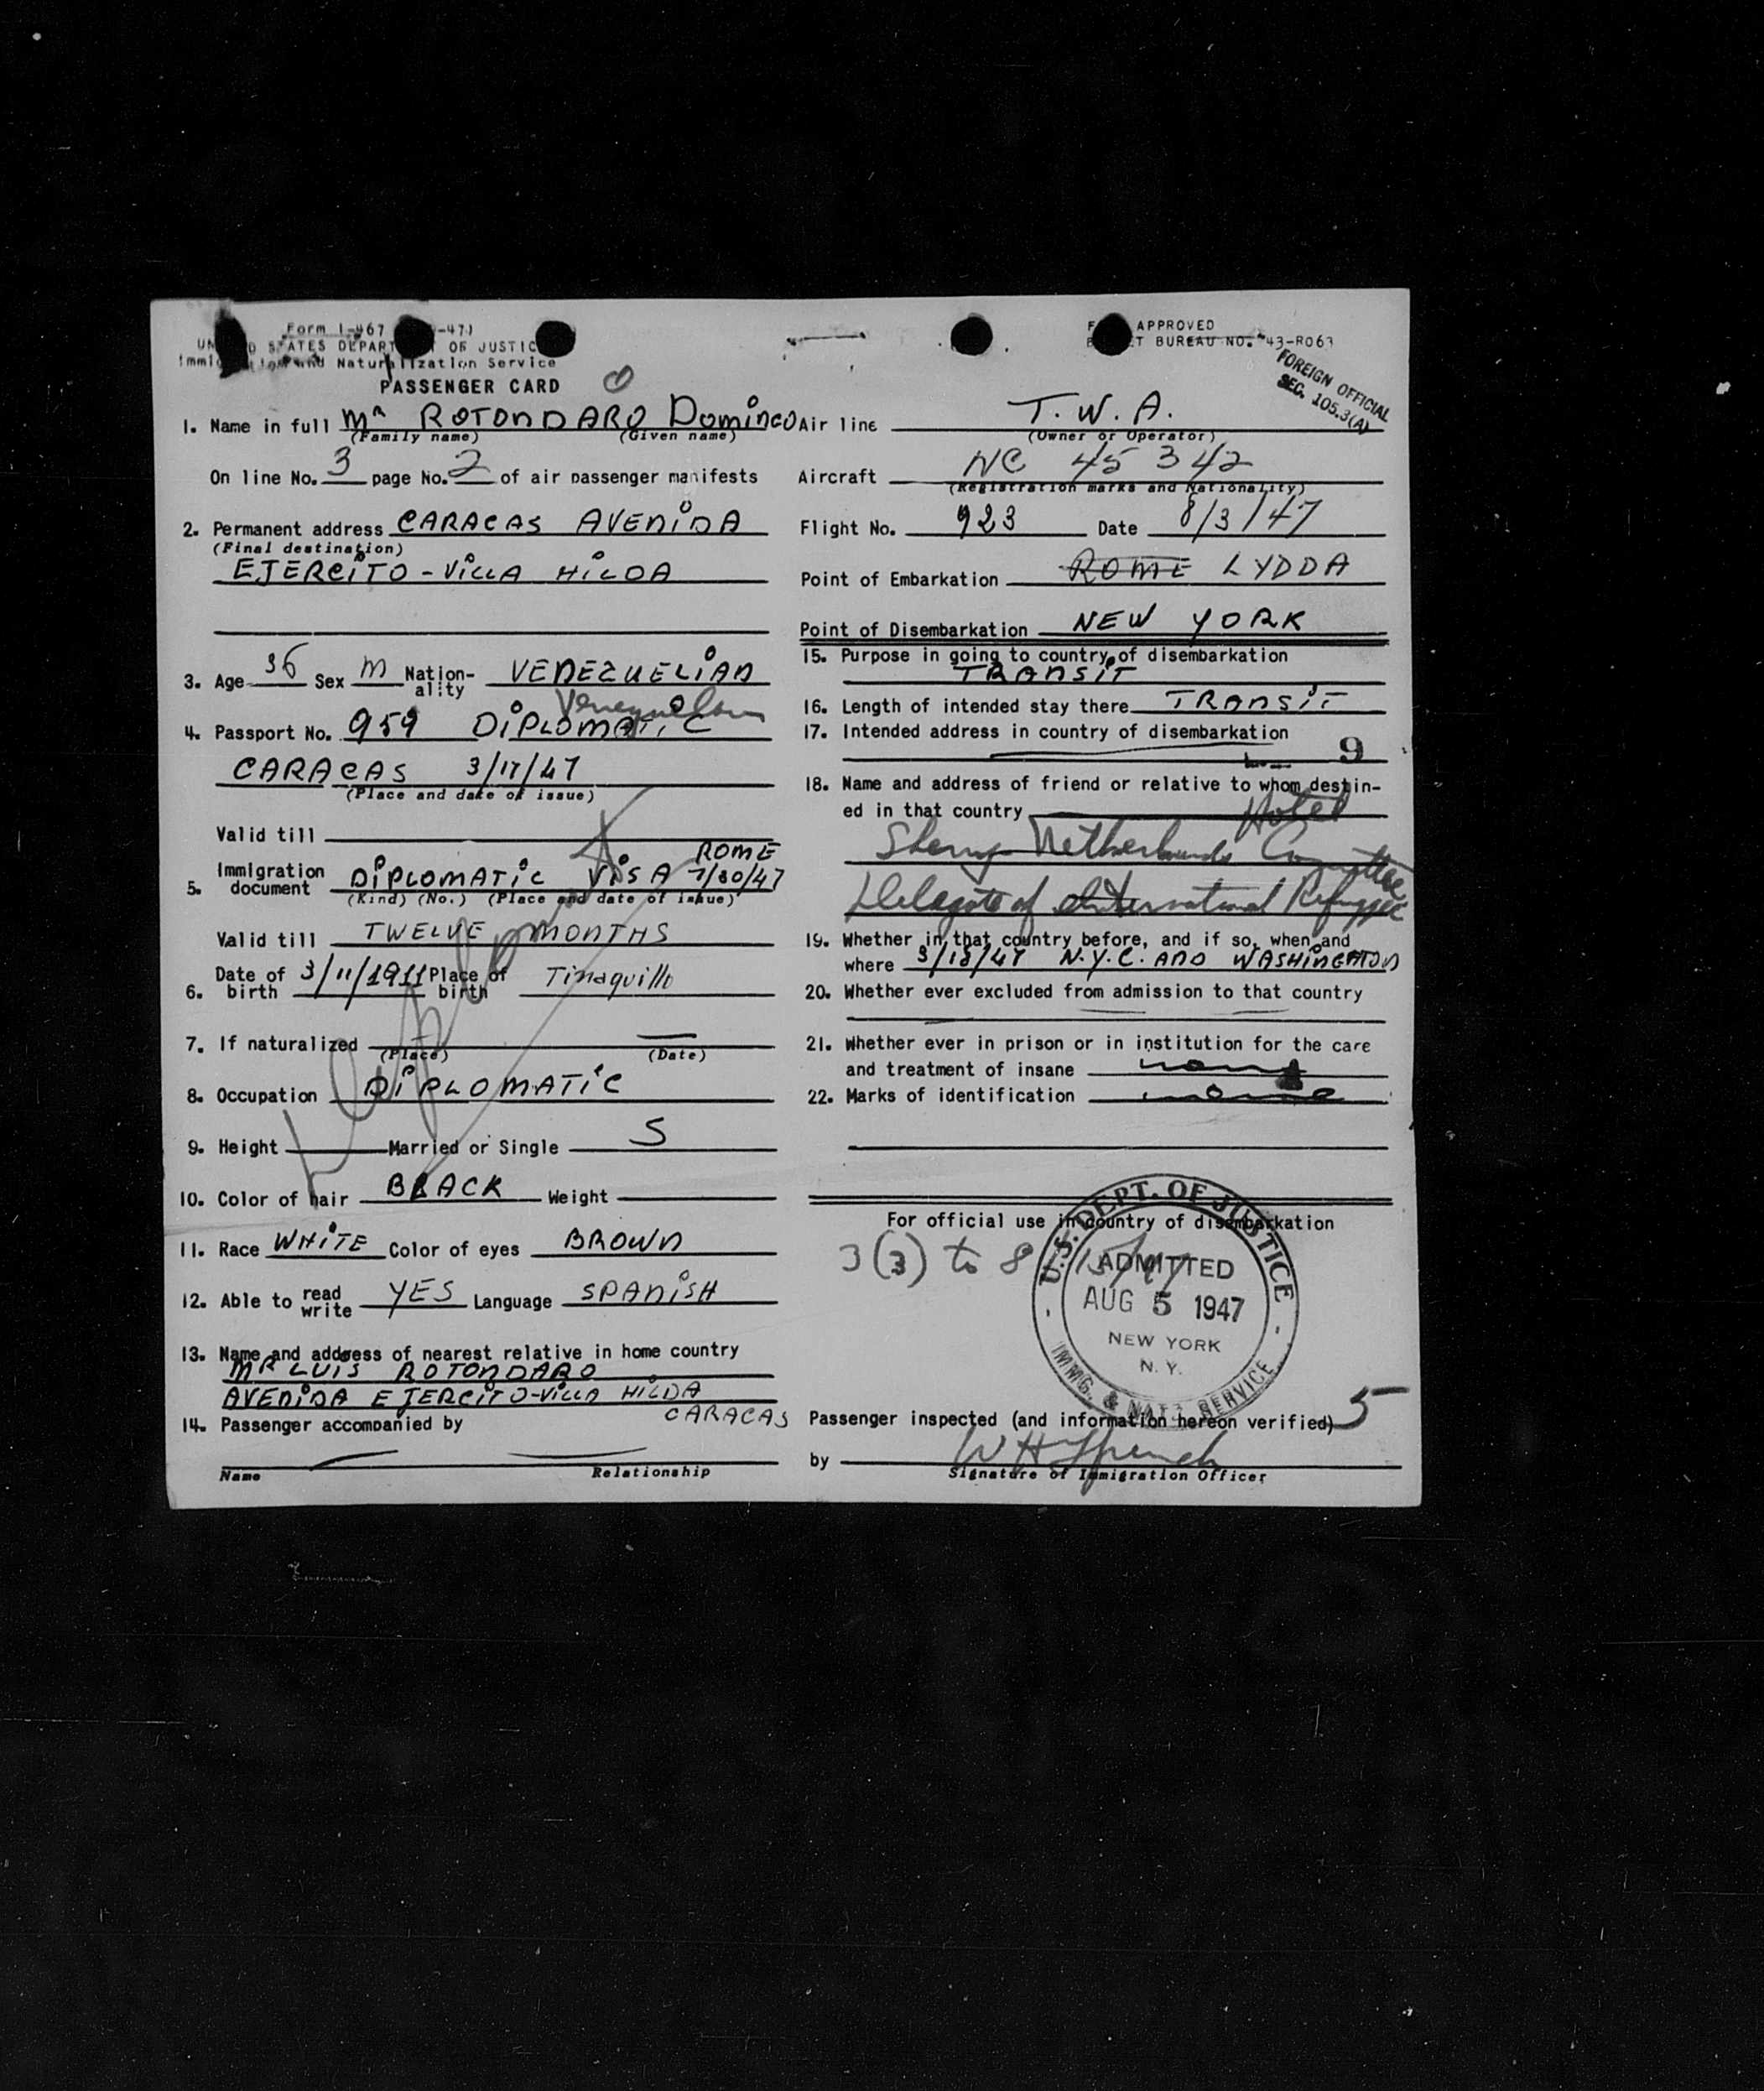 Form I-467 -47)
UN D STATES DEPART T OF JUSTIC
Immig ation and Naturalization Service
PASSENGER CARD
1. Name in full Mr ROTONDARO Domingo
(Family name) (Given name)
On line No. 3 page No. 2 of air passenger manifests
2. Permanent address CARACAS AVENIDA
(Final destination)
EJERCITO - VILLA HILDA
3. Age 36 Sex M Nation-ality VENEZUELIAN
Venezuelan
4. Passport No. 959 DIPLOMATIC
CARACAS 3/17/47
(Place and date of issue)
Valid till
ROME
5. Immigration document DIPLOMATIC VISA 7/30/47
(Kind) (No.) (Place and date of issue)
Valid till TWELVE MONTHS
6. Date of birth 3/11/1911 Place of birth Tinaquillo
7. If naturalized
(Place) (Date)
8. Occupation DIPLOMATIC
9. Height Married or Single S
10. Color of hair BLACK Weight
11. Race WHITE Color of eyes BROWN
12. Able to read write YES Language SPANISH
13. Name and address of nearest relative in home country
MR LUIS ROTONDARO
AVENIDA EJERCITO-VILLA HILDA
CARACAS
14. Passenger accompanied by
Name Relationship
F APPROVED
B ET BUREAU NO. 43-R063
FOREIGN OFFICIAL
SEC. 105.3(A)
Air line T.W.A.
(Owner or Operator)
Aircraft NC 45342
(Registration marks and Nationality)
Flight No. 923 Date 8/3/47
Point of Embarkation ROME LYDDA
Point of Disembarkation NEW YORK
15. Purpose in going to country of disembarkation
TRANSIT
16. Length of intended stay there TRANSIT
17. Intended address in country of disembarkation
9
18. Name and address of friend or relative to whom destin-
ed in that country Hotel
Sherry Netherlands Committee
Delegate of International Refugee
19. Whether in that country before, and if so, when and
where 3/18/47 N.Y.C. AND WASHINGTON
20. Whether ever excluded from admission to that country
21. Whether ever in prison or in institution for the care
and treatment of insane none
22. Marks of identification none
For official use in country of disembarkation
3(3) to 8/15/47
U.S. DEPT. OF JUSTICE
ADMITTED
AUG 5 1947
NEW YORK
N.Y.
IMMG. & NATZ. SERVICE
Passenger inspected (and information hereon verified) 5
by
Signature of Immigration Officer